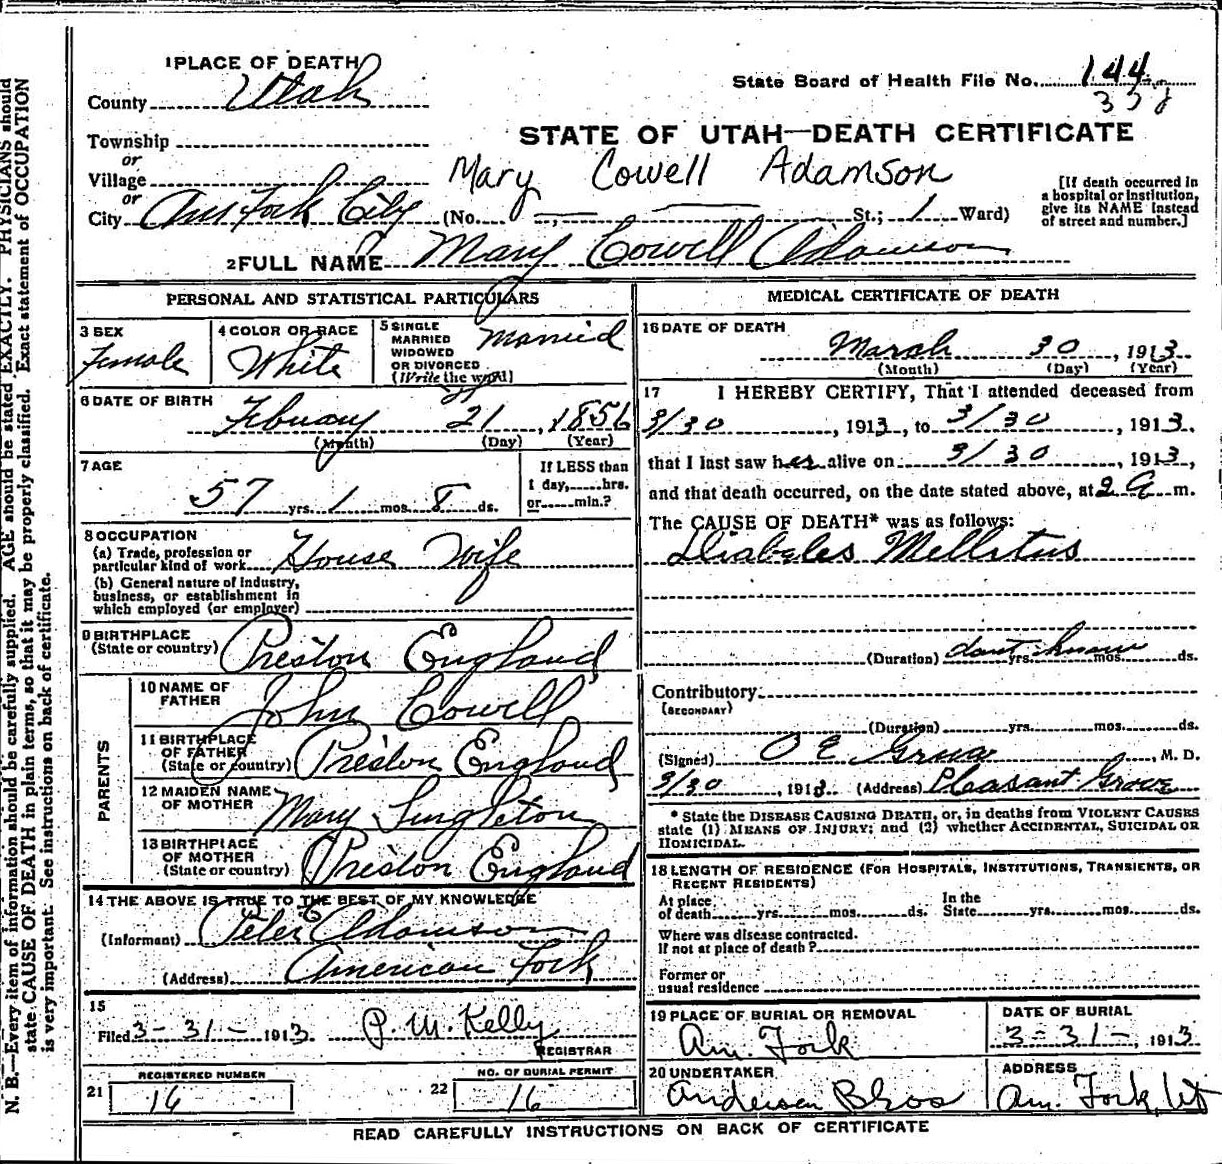 1 PLACE OF DEATH
County Utah
State Board of Health File No. 144
Township
or
Village
or
City Am Fork City (No. St.; 1 Ward)
STATE OF UTAH—DEATH CERTIFICATE
Mary Cowell Adamson
[If death occurred in
a hospital or institution,
give its NAME instead
of street and number.]
2 FULL NAME Mary Cowell Adamson
PERSONAL AND STATISTICAL PARTICULARS
3 SEX
Female
4 COLOR OR RACE
White
5 SINGLE
MARRIED
WIDOWED
OR DIVORCED
(Write the word)
Married
6 DATE OF BIRTH
Febuary 21, 1856
(Month) (Day) (Year)
7 AGE
57 yrs. 1 mos. 8 ds.
If LESS than
1 day, hrs.
or min.?
8 OCCUPATION
(a) Trade, profession or
particular kind of work House Wife
(b) General nature of industry,
business, or establishment in
which employed (or employer)
9 BIRTHPLACE
(State or country) Preston England
PARENTS
10 NAME OF
FATHER John Cowell
11 BIRTHPLACE
OF FATHER
(State or country) Preston England
12 MAIDEN NAME
OF MOTHER Mary Singleton
13 BIRTHPLACE
OF MOTHER
(State or country) Preston England
14 THE ABOVE IS TRUE TO THE BEST OF MY KNOWLEDGE
(Informant) Peter Adamson
(Address) American Fork
15
Filed 3-31- 1913. P. M. Kelly
REGISTRAR
REGISTERED NUMBER
21 16
NO. OF BURIAL PERMIT
22 16
MEDICAL CERTIFICATE OF DEATH
16 DATE OF DEATH
March 30, 1913
(Month) (Day) (Year)
17 I HEREBY CERTIFY, That I attended deceased from
3/30, 1913, to 3/30, 1913,
that I last saw her alive on 3/30, 1913,
and that death occurred, on the date stated above, at 2 a m.
The CAUSE OF DEATH* was as follows:
Diabetes Mellitus
(Duration) dont know yrs. mos. ds.
Contributory
(SECONDARY)
(Duration) yrs. mos. ds.
(Signed) O E Grua, M. D.
3/30, 1913 (Address) Pleasant Grove
* State the DISEASE CAUSING DEATH, or, in deaths from VIOLENT CAUSES
state (1) MEANS OF INJURY; and (2) whether ACCIDENTAL, SUICIDAL OR
HOMICIDAL.
18 LENGTH OF RESIDENCE (FOR HOSPITALS, INSTITUTIONS, TRANSIENTS, OR
RECENT RESIDENTS)
At place
of death yrs. mos. ds.
In the
State yrs. mos. ds.
Where was disease contracted.
If not at place of death?
Former or
usual residence
19 PLACE OF BURIAL OR REMOVAL
Am. Fork
DATE OF BURIAL
3-31-, 1913
20 UNDERTAKER
Anderson Bros
ADDRESS
Am. Fork, Ut
READ CAREFULLY INSTRUCTIONS ON BACK OF CERTIFICATE
N. B.—Every item of information should be carefully supplied. AGE should be stated EXACTLY. PHYSICIANS should
state CAUSE OF DEATH in plain terms, so that it may be properly classified. Exact statement of OCCUPATION
is very important. See instructions on back of certificate.